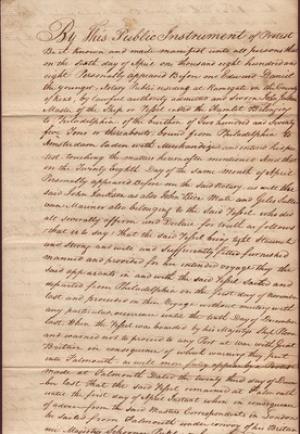 By This Public Instrument of Protest
Be it known and made manifest unto all persons that
on the sixth day of April one thousand eight hundred and
eight Personally appeared Before me Edward Daniel
the younger, Notary Public residing at Ramsgate in the County
of Kent, by lawful authority admitted and sworn John
Master of the Ship or Vessel called the Belonging
to Philadelphia of the burthen of Two hundred and Seventy
five Tons or thereabouts bound from Philadelphia to
Amsterdam laden with Merchandize and entered his pro-
test touching the matters hereinafter mentioned And this
on the Twenty Eighth Day of the same Month of April
Personally appeared Before me the said Notary as well the
said John as also John Mate and Giles
Mariner also belonging to the Said Vessel who did
all severally affirm and Declare for truth as follows
that is to say That the Said Vessel being tight Staunch
and Strong and well and Sufficiently fitted furnished
manned and provided for her intended voyage they the
Said apparants in and with the said Vessel Sailed and
departed from Philadelphia on the first day of November
last and proceeded on their Voyage without meeting with
any particular occurrence until the tenth Day of December
last When the Vessel was boarded by his Majestys Ship
and warned not to proceed to any Port at war with Great
Britain in consequence of which warning they put
into Falmouth as will more fully appear by a Protest
Made at Falmouth Dated the twenty third day of Decem-
ber last That the said Vessel remained at Falmouth
until the first day of April Instant when in consequence
of advice from the said Masters Correspondents in London
he Sailed from Falmouth under convoy of his Britan-
nic Majestys Schooner